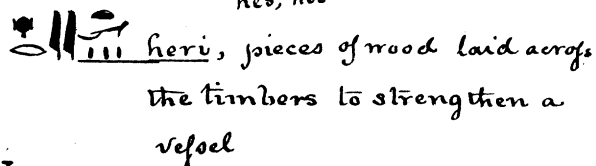 heri, pieces of wood laid across
the timbers to strengthen a
vessel